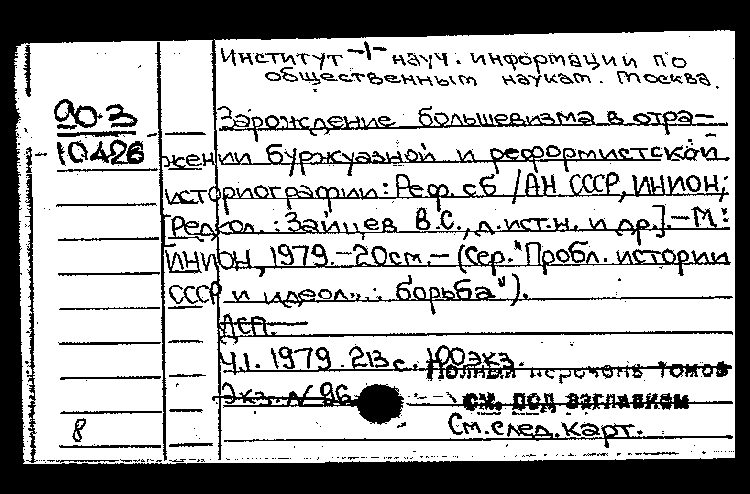 Институт -1- науч. информации по
общественным наукам. Москва.
90-3
10426
Зарождение большевизма в отра-
жении буржуазной и реформистской
историографии: Реф. сб /АН СССР, ИНИОН;
[Редкол.: Зайцев В.С., д.ист.н. и др.].-М.:
ИНИОН, 1979.-20см.- (Сер. "Пробл. истории
СССР и идеол... борьба").
ДСП.-
Ч.1. 1979. 213 с. 100экз.
Полный перечень томов
Экз. N 86
см. под заглавием
См. след. карт.
8